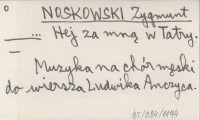 NOSKOWSKI Zygmunt
... Hej za mną w Tatry.
Muzyka na chór męski
do wiersza Ludwika Anczyca.